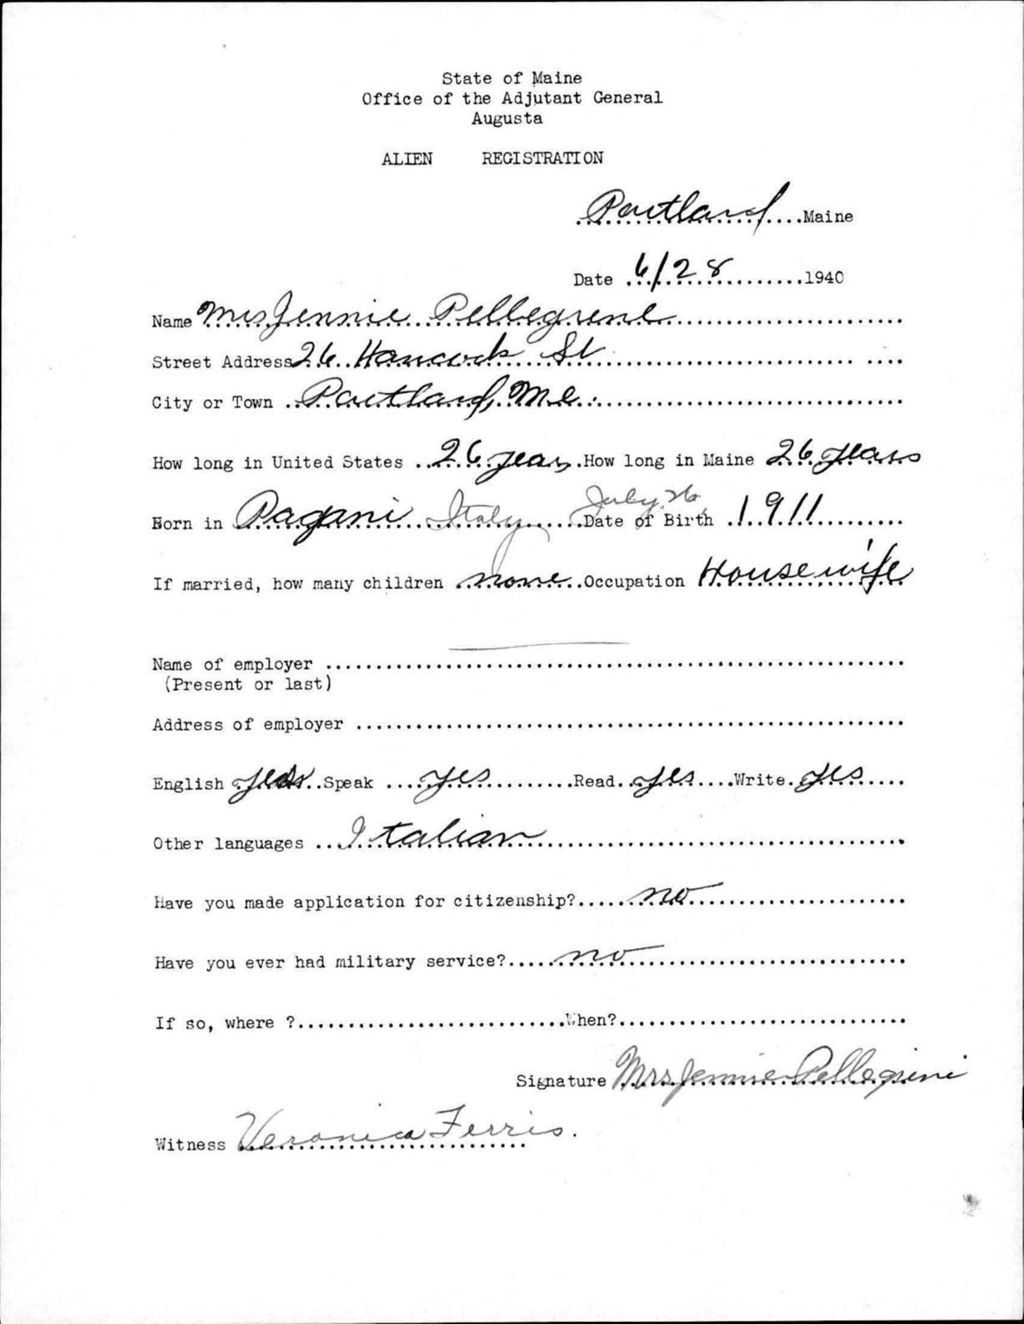 State of Maine
Office of the Adjutant General
Augusta
ALIEN REGISTRATION
Portland Maine
Date 6/28 1940
Name Mrs Jennie Pellegrene
Street Address 26 Hancock St
City or Town Portland, Me.
How long in United States 26 years How long in Maine 26 years
Born in Pagani Italy Date of Birth July 26, 1911
If married, how many children none Occupation Housewife
Name of employer
(Present or last)
Address of employer
English yes Speak yes Read yes Write yes
Other languages Italian
Have you made application for citizenship? no
Have you ever had military service? no
If so, where ? When?
Signature Mrs Jennie Pellegrini
Witness Veronica Ferris.